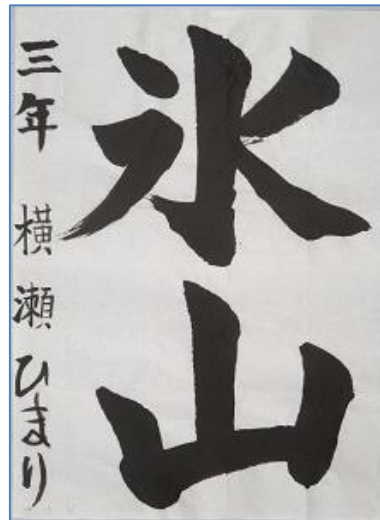 氷山
三年 横瀬ひまり